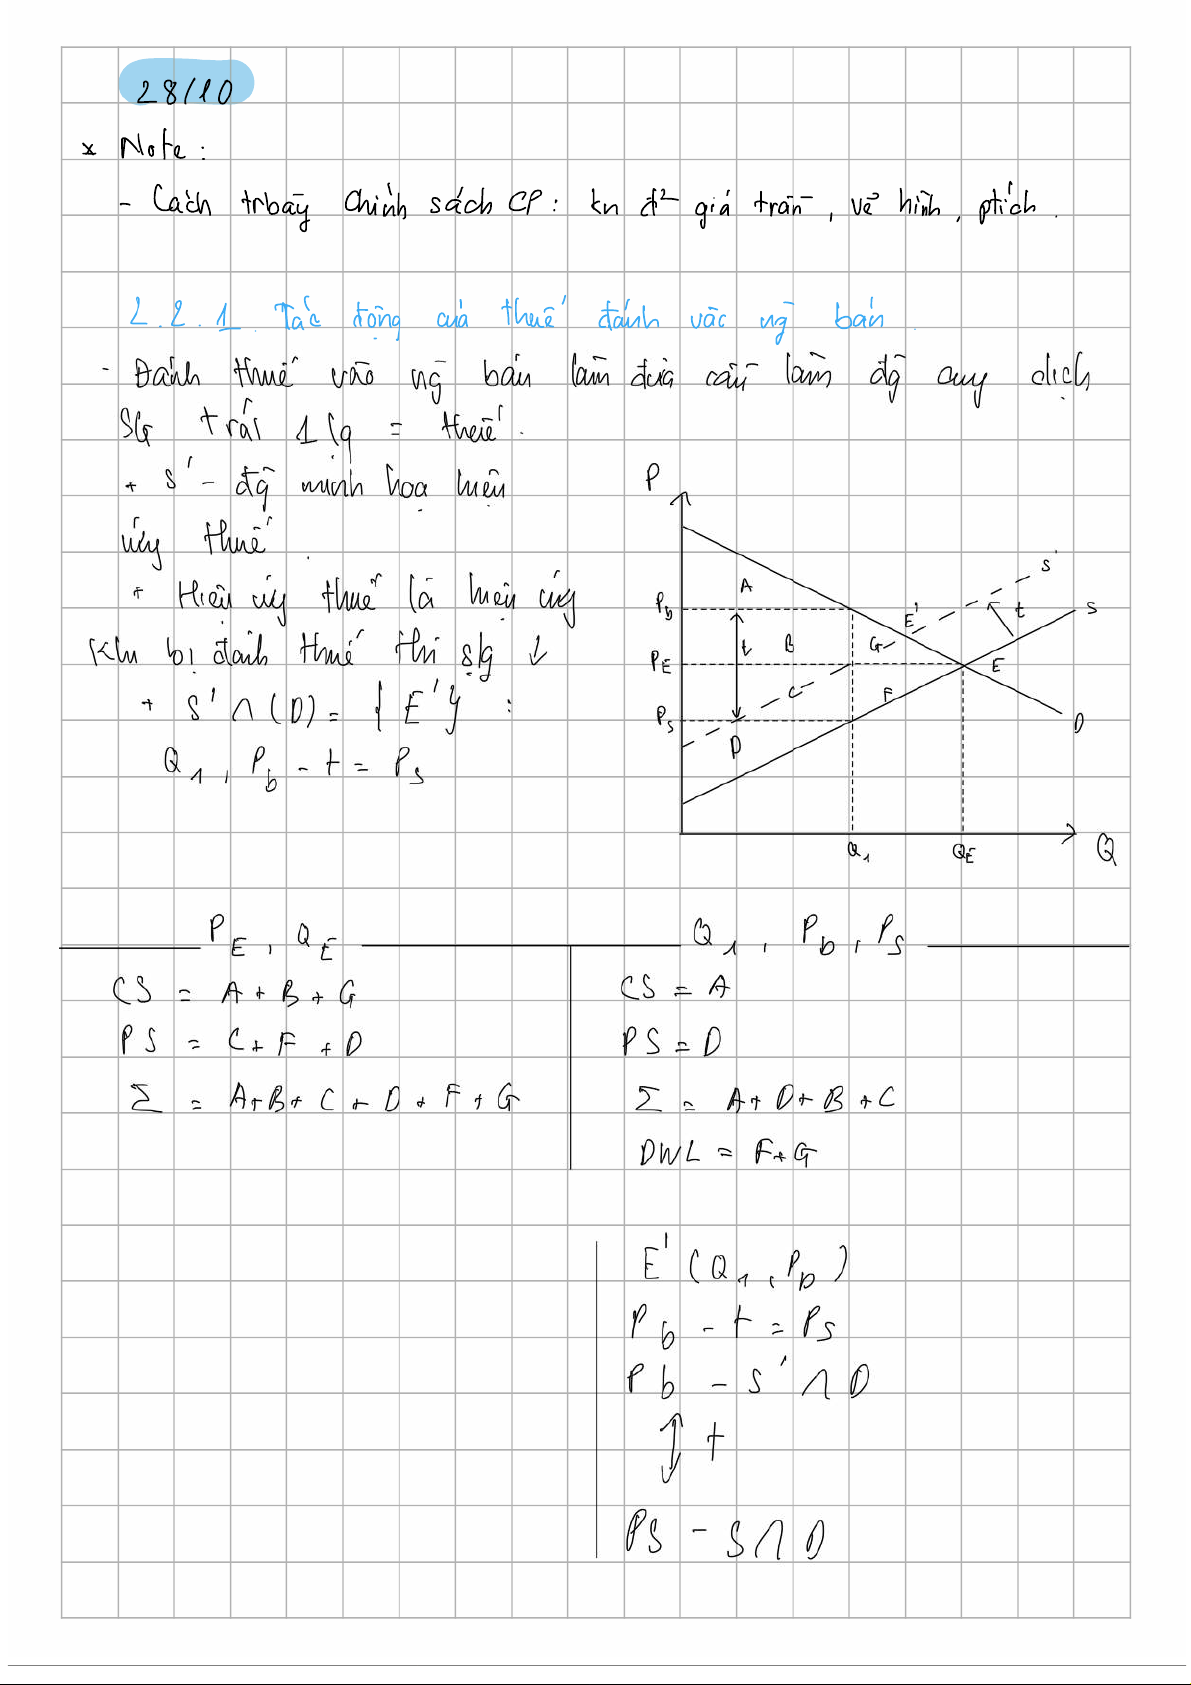 28/10
* Note:
- Cách trbày chính sách CP: kn đ² giá trần, vẽ hình, ptích.
2.2.1. Tác động của thuế đánh vào ng̃ bán.
- Đánh thuế vào ng̃ bán làm đưa cầu làm đg̃ cuy dịch
SG trái 1 lg = thuế.
+ S' - đg̃ minh hoạ hiệu
ứy thuế.
+ Hiệu ứy thuế là hiệu ứng
Khi bị đánh thuế thì slg ↓
+ S' ∩ (D) = {E'} :
Q1, Pb - t = Ps
P
S'
A
Pb
E'
t
S
t
B
G
PE
E
C
F
Ps
D
D
Q1
QE
Q
PE, QE
Q1, Pb, Ps
CS = A + B + G
CS = A
PS = C + F + D
PS = D
Σ = A+B+C+D+F+G
Σ = A+D+B+C
DWL = F+G
E'(Q1, Pb)
Pb - t = Ps
Pb - S' ∩ D
↕ t
PS - S ∩ D